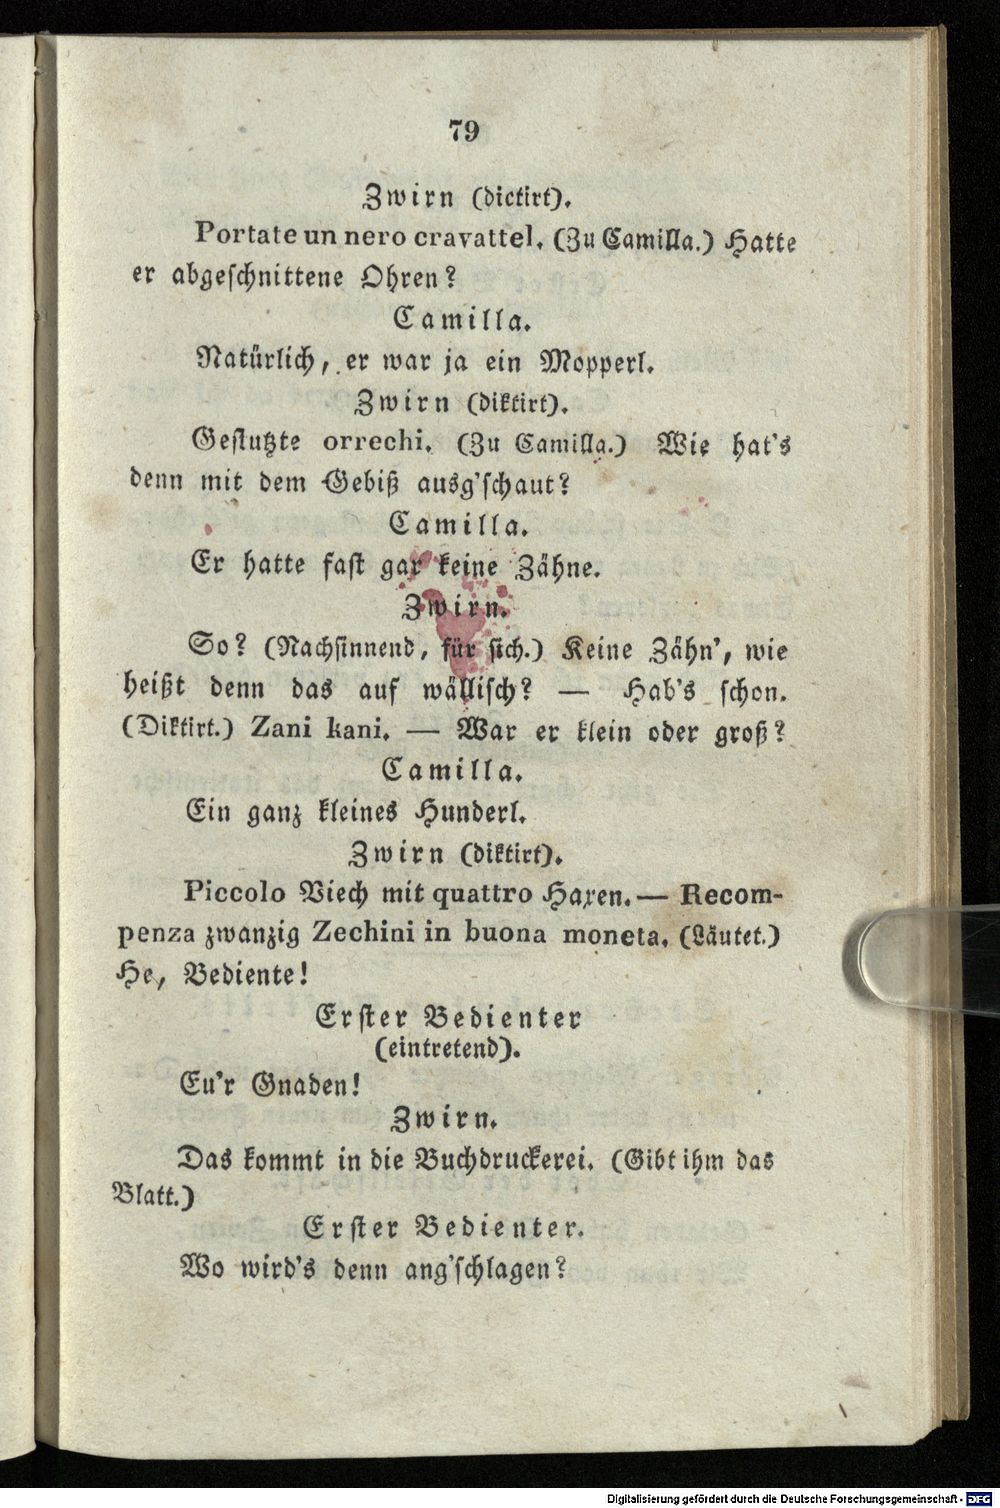 79
Zwirn (dictirt).
Portate un nero cravattel. (Zu Camilla.) Hatte
er abgeschnittene Ohren?
Camilla.
Natürlich, er war ja ein Mopperl.
Zwirn (diktirt).
Gestutzte orrechi. (Zu Camilla.) Wie hat's
denn mit dem Gebiß ausg'schaut?
Camilla.
Er hatte fast gar keine Zähne.
Zwirn.
So? (Nachsinnend, für sich.) Keine Zähn', wie
heißt denn das auf wällisch? — Hab's schon.
(Diktirt.) Zani kani. — War er klein oder groß?
Camilla.
Ein ganz kleines Hunderl.
Zwirn (diktirt).
Piccolo Viech mit quattro Haxen. — Recom-
penza zwanzig Zechini in buona moneta. (Läutet.)
He, Bediente!
Erster Bedienter
(eintretend).
Eu'r Gnaden!
Zwirn.
Das kommt in die Buchdruckerei. (Gibt ihm das
Blatt.)
Erster Bedienter.
Wo wird's denn ang'schlagen?
Digitalisierung gefördert durch die Deutsche Forschungsgemeinschaft - DFG